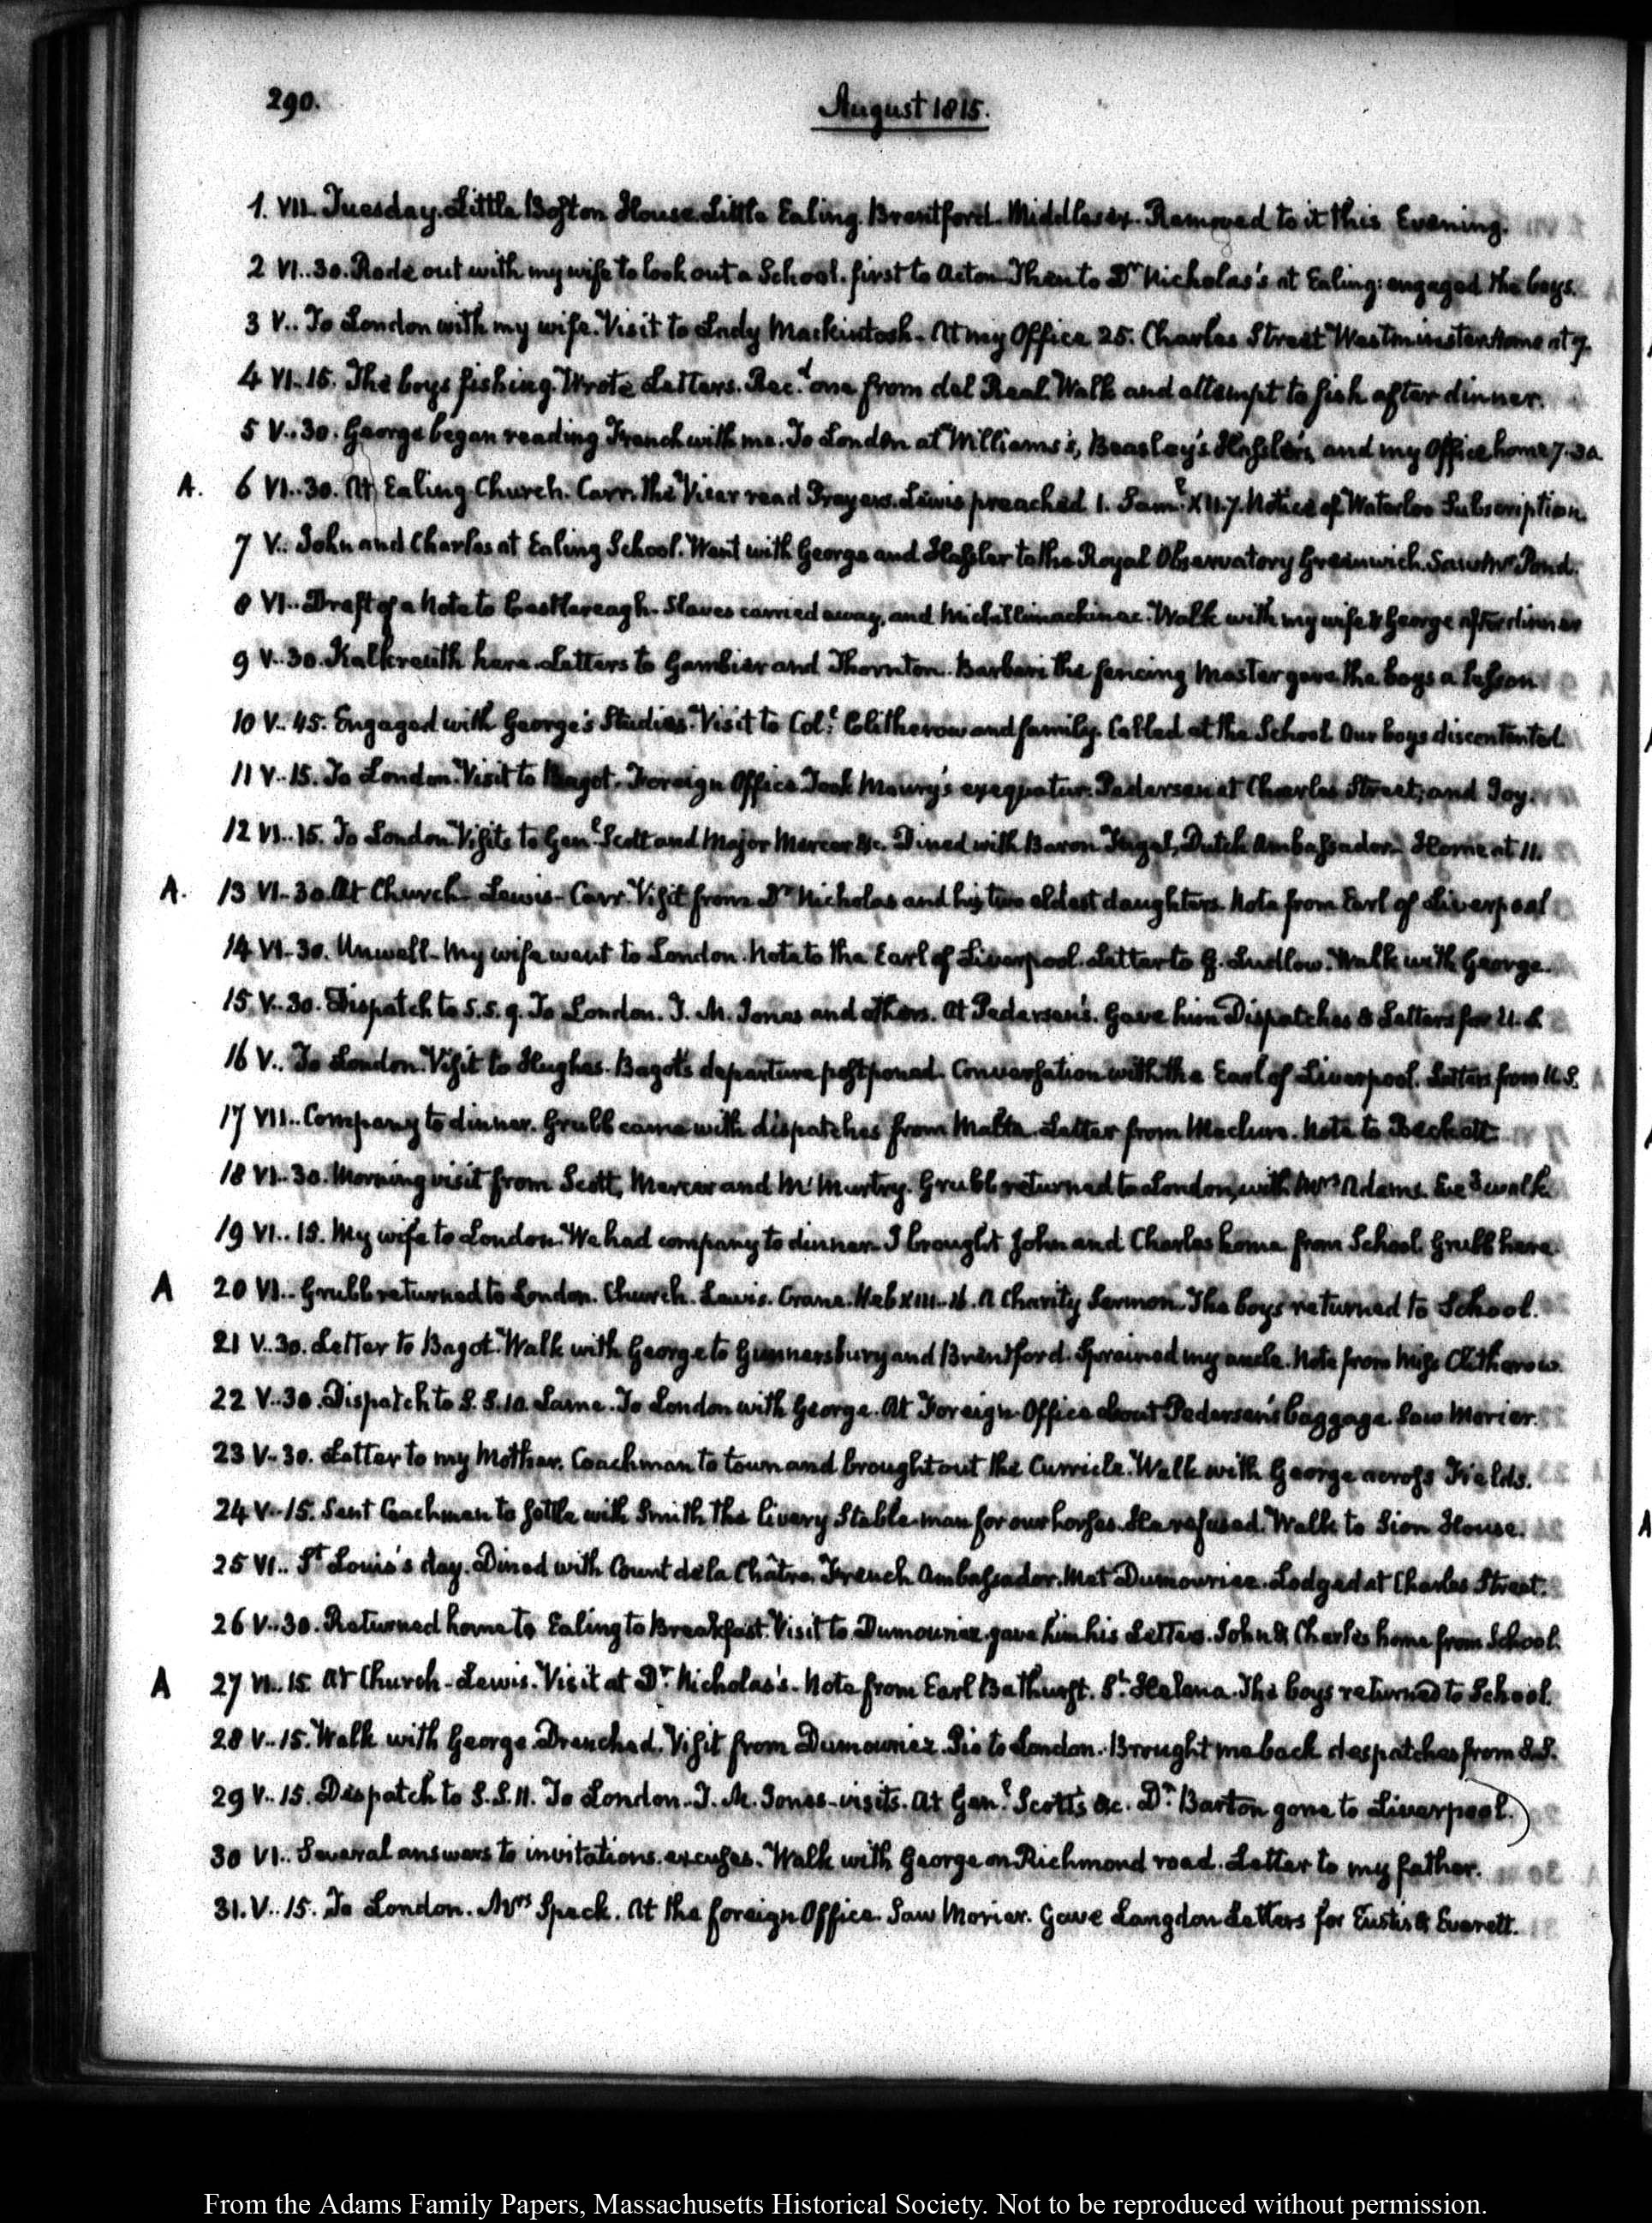 290.
August 1815.
1. VII. Tuesday. Little Boston House. Little Ealing. Brentford. Middlesex. Removed to it this Evening.
2 VI..30. Rode out with my wife to look out a School. first to Acton. Then to Dr Nicholas's at Ealing: engaged the boys.
3 V.. To London with my wife. Visit to Lady Mackintosh. At my Office 25. Charles Street Westminster. Home at 7.
4 VI.15. The boys fishing. Wrote Letters. Recd. one from del Real. Walk and attempt to fish after dinner.
5 V..30. George began reading French with me. To London at Williams's, Beasley's Hassler's, and my Office home 7.30.
A. 6 VI..30. At Ealing Church. Carr. the Vicar read Prayers. Lewis preached 1. Saml. XII.7. Notice of Waterloo Subscription.
7 V.. John and Charles at Ealing School. Went with George and Hassler to the Royal Observatory Greenwich. Saw Mr Pond.
8 VI.. Draft of a Note to Castlereagh. Slaves carried away, and Michillimackinac. Walk with my wife & George after dinner
9 V..30. Kalkreuth here. Letters to Gambier and Thornton. Barberi the fencing Master gave the boys a lesson.
10 V..45. Engaged with George's Studies. Visit to Coll. Clitherow and family. Called at the School. Our boys discontented.
11 V..15. To London. Visit to Bagot. Foreign Office. Took Maury's exequatur. Pedersen at Charles Street, and Joy.
12 VI..15. To London. Visits to Genl. Scott and Major Mercer &c. Dined with Baron Fagel, Dutch Ambassador. Home at 11.
A. 13 VI-30. At Church. Lewis - Carr. Visit from Dr Nicholas and his two eldest daughters. Note from Earl of Liverpool
14 VI-30. Unwell. My wife went to London. Note to the Earl of Liverpool. Letter to G. Ludlow. Walk with George.
15 V..30. Dispatch to S.S. 9. To London. T. M. Jones and others. At Pedersen's. Gave him Dispatches & Letters for U.S.
16 V.. To London. Visit to Hughes. Bagot's departure postponed. Conversation with the Earl of Liverpool. Letters from U.S.
17 VII.. Company to dinner. Grubb came with dispatches from Malta. Letter from Maclure. Note to Beckett.
18 VI..30. Morning visit from Scott, Mercer and McMurtry. Grubb returned to London, with Mrs Adams. Eveg walk.
19 VI..15. My wife to London. We had company to dinner. I brought John and Charles home from School. Grubb here.
A 20 VI.. Grubb returned to London. Church. Lewis. Crane. Heb XIII..16. A Charity Sermon. The boys returned to School.
21 V.30. Letter to Bagot. Walk with George to Gunnersbury and Brentford. Sprained my ancle. Note from Miss Clitherow.
22 V..30. Dispatch to S. S. 10. Lame. To London with George. At Foreign Office about Pedersen's baggage. Saw Morier.
23 V-30. Letter to my Mother. Coachman to town and brought out the Curricle. Walk with George across Fields.
24 V-15. Sent Coachman to settle with Smith the livery Stable-man for our horses. He refused. Walk to Sion House.
25 VI.. St Louis's day. Dined with Count de la Châtre. French Ambassador. Met Dumouriez. Lodged at Charles Street.
26 V..30. Returned home to Ealing to Breakfast. Visit to Dumouriez gave him his Letters. John & Charles home from School.
A 27 VI..15. At Church - Lewis. Visit at Dr. Nicholas's. Note from Earl Bathurst. St. Helena. The boys returned to School.
28 V..15. Walk with George. Drenched. Visit from Dumouriez. Pio to London. Brought me back despatches from S.S.
29 V..15. Dispatch to S.S.11. To London. T. M. Jones - visits. At Genl. Scott's &c. Dr. Barton gone to Liverpool.
30 VI.. Several answers to invitations. excuses. Walk with George on Richmond road. Letter to my father.
31. V..15. To London. Mrs Speck. At the foreign Office. Saw Morier. Gave Langdon Letters for Eustis & Everett.
From the Adams Family Papers, Massachusetts Historical Society. Not to be reproduced without permission.